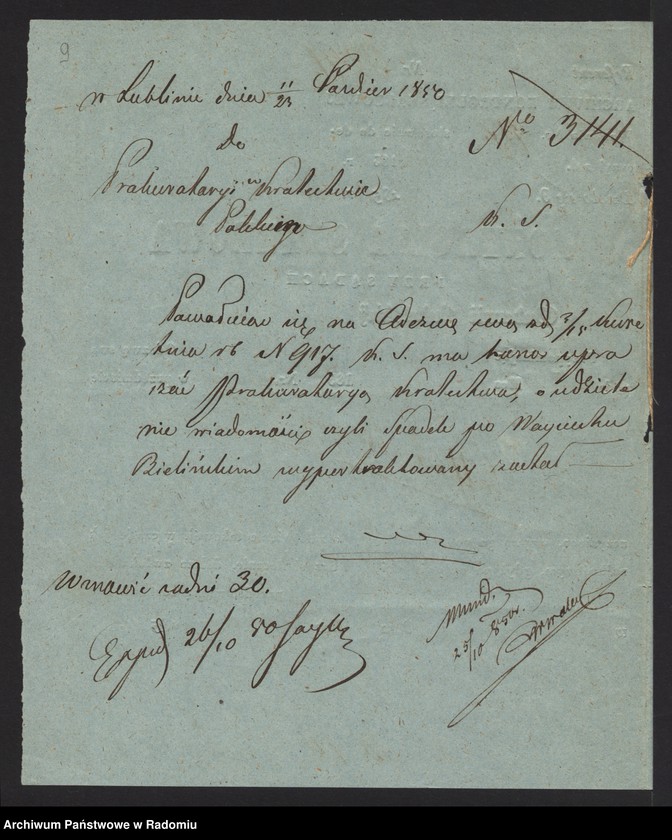 9
w Lublinie dnia 11/23 Paździer 1850
No 3141.
Do
Prokuratoryi w Królestwie
Polskiego
K. S.
Powołując się na Odezwę swą od 3/15 Kwie
tnia rb N 917. K. S. ma honor upra
szać Prokuratoryą Królestwa, o udziele
nie wiadomości czyli Spadek po Woyciechu
Bielińskim wypertraktowany został
Wznowić za dni 30.
Mund.
25/10 850r.
26/10 50
Archiwum Państwowe w Radomiu